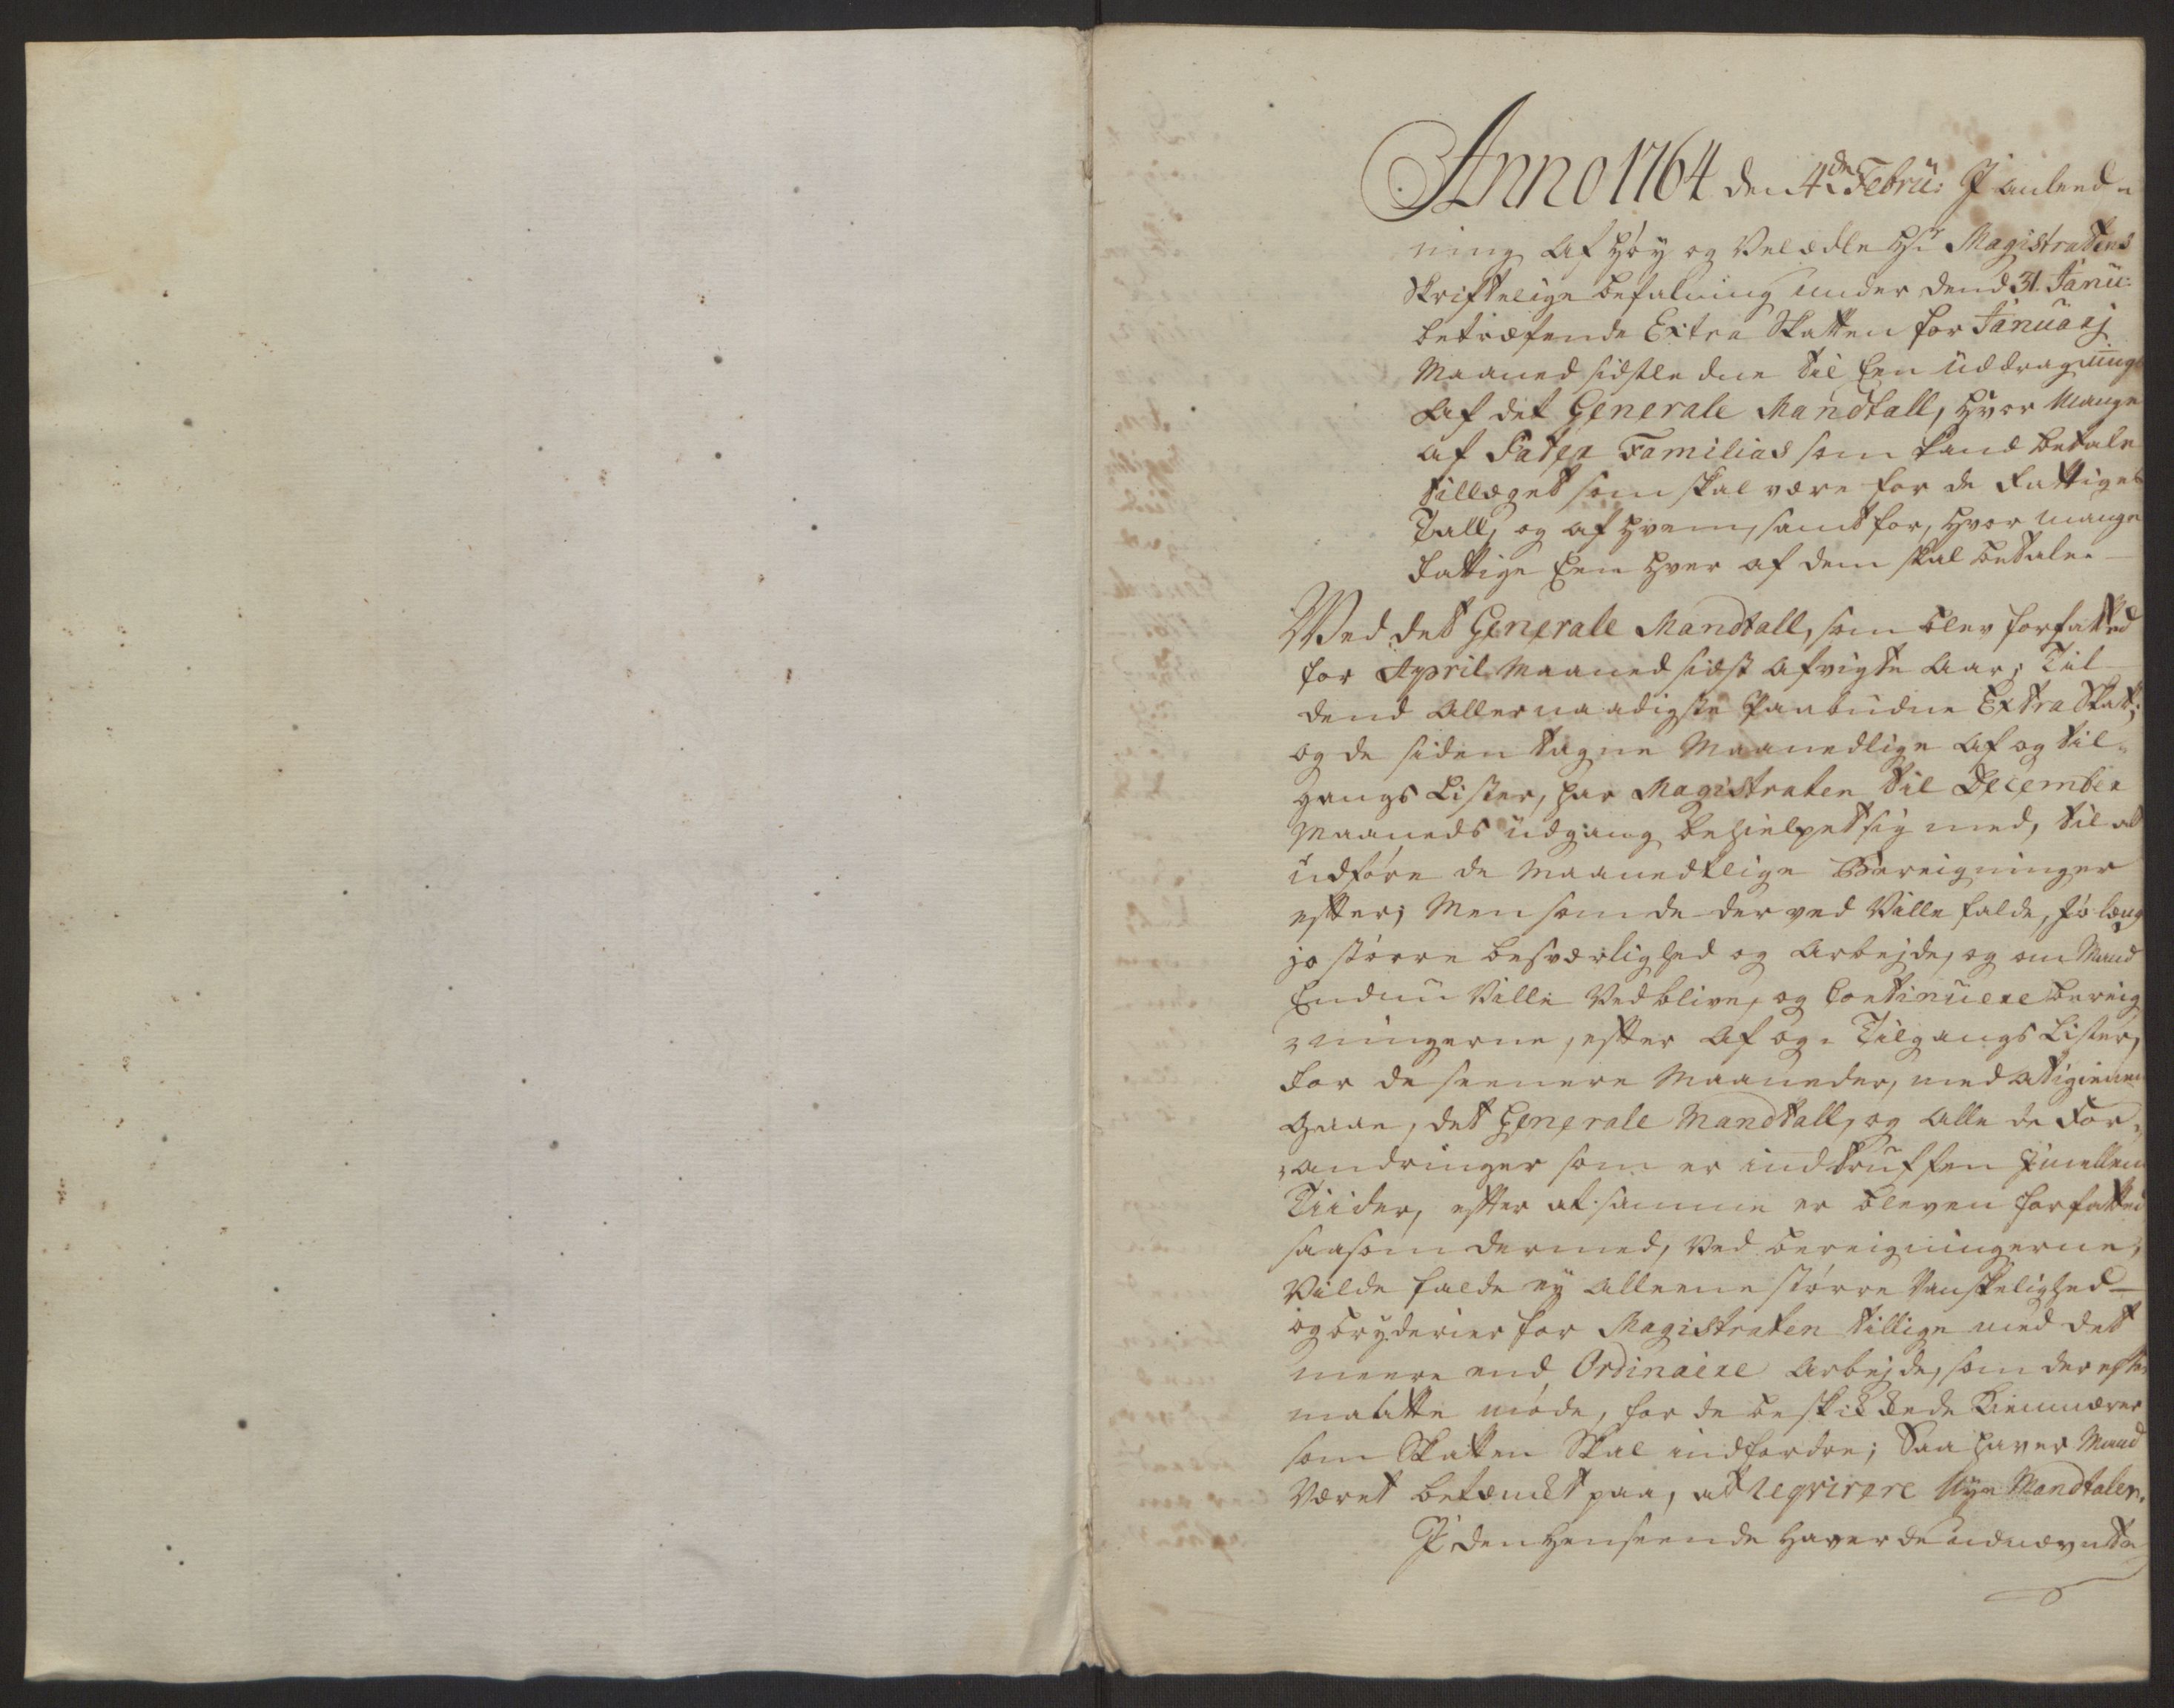 Anno 1764 den 4de Febru: I anleed-
ning Af Høy og Velædle Hr Magistratens
Skriftelige befalning under dend 31. Janu:
betræfende Extra Skatten for Januarj
Maaned sidstledene til Een uddragning
Af det Generale Mandtall, Hvor Mange
af Pater Familias som kand betale
tillæget som skal være for de Fattiges
Tall, og af hvem, samt for, Hvor mange
Fattige Een Hver af dem skal betale.
Wed det Generale Mandtall, som blev forfatted
for April Maaned sidst afvigte Aar; Til
dend Allernaadigste Paabudne Extra Skatt;
og de siden tagne Maanedlige af og til-
gangs Lister, har Magistraten til December
Maaneds udgang behielpet sig med, til at
udføre de Maanedtlige Bereigninger
efter; Men som de derved Ville falde, jo læng
jo større besværlighed og Arbejde, og om Mand
Endnu Ville Vedblive, og Continuere bereig
-ningerne, efter Af og Tilgangs Lister,
for de seenere Maaneder, med at igienem
gaae, det Generale Mandtall, og alle de For-
-andringer som er indtruffen Imellem
Tiider, efter at samme er bleven forfatted
saasom dermed, Ved bereigningerne,
Vilde falde ey alleene større Vanskelighed
og bryderier for Magistraten tillige med det
meere end Ordinaire Arbejde, som der efter
maatte møde, for de beskikkede Kiemnerer
som Skatten Skal indfordre; Saa haver Mand
Været betænckt paa, at reqvirere Nye Mandtaler.
I den Henseende Haver de udnævnte